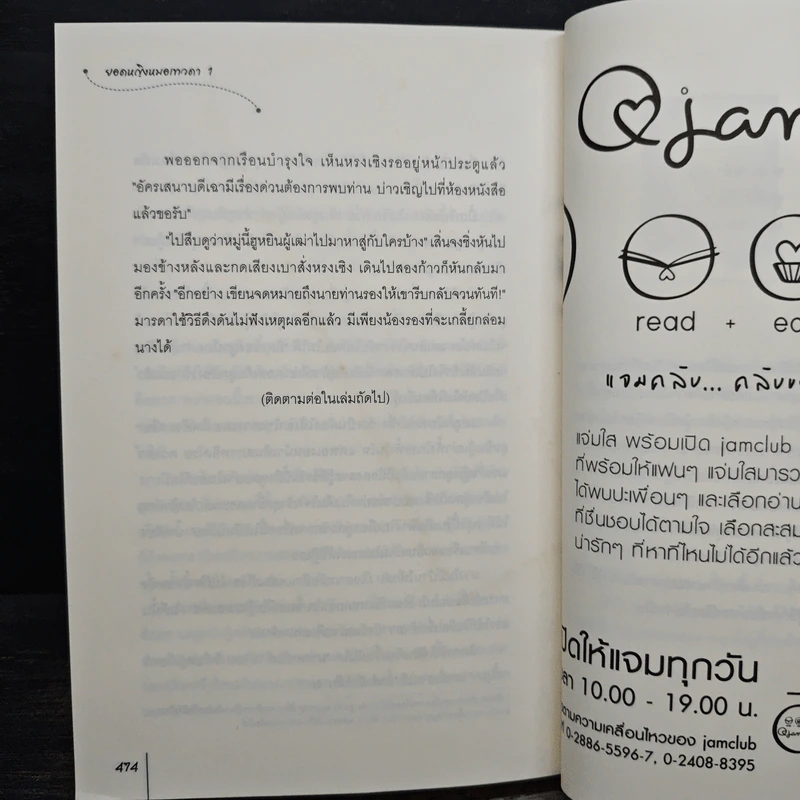 ยอดหญิงหมอเทวดา 1
พอออกจากเรือนบำรุงใจ เห็นหรงเชิงรออยู่หน้าประตูแล้ว
"อัครเสนาบดีเฉามีเรื่องด่วนต้องการพบท่าน บ่าวเชิญไปที่ห้องหนังสือ
แล้วขอรับ"
"ไปสืบดูว่าหมู่นี้ฮูหยินผู้เฒ่าไปมาหาสู่กับใครบ้าง" เสิ่นจงซิ่งหันไป
มองข้างหลังและกดเสียงเบาสั่งหรงเชิง เดินไปสองก้าวก็หันกลับมา
อีกครั้ง "อีกอย่าง เขียนจดหมายถึงนายท่านรองให้เขารีบกลับจวนทันที!"
มารดาใช้วิธีดึงดันไม่ฟังเหตุผลอีกแล้ว มีเพียงน้องรองที่จะเกลี้ยกล่อม
นางได้
(ติดตามต่อในเล่มถัดไป)
474
@jam
read + ea
แจมคลับ... คลับข
แจ่มใส พร้อมเปิด jamclub
ที่พร้อมให้แฟนๆ แจ่มใสมารว
ได้พบปะเพื่อนๆ และเลือกอ่าน
ที่ชื่นชอบได้ตามใจ เลือกสะสม
น่ารักๆ ที่หาที่ไหนไม่ได้อีกแล้ว
ปิดให้แจมทุกวัน
ลา 10.00 - 19.00 น.
ตามความเคลื่อนไหวของ jamclub
0-2886-5596-7, 0-2408-8395